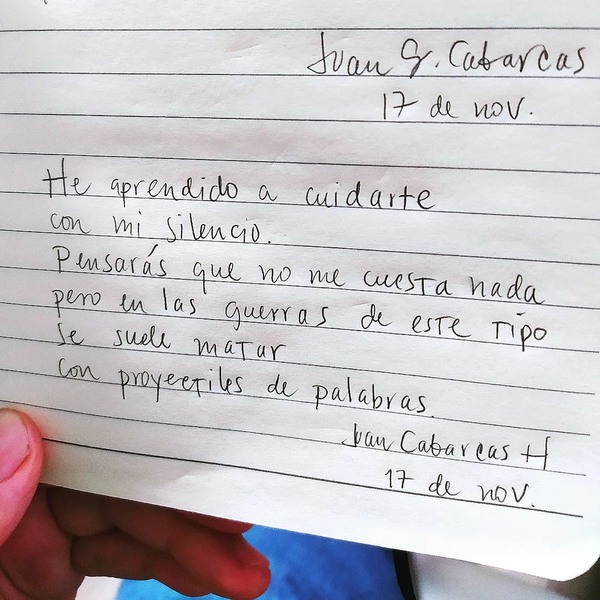 Juan G. Cabarcas
17 de nov.
He aprendido a cuidarte
con mi silencio.
Pensarás que no me cuesta nada
pero en las guerras de este tipo
se suele matar
con proyectiles de palabras.
Juan Cabarcas H
17 de nov.